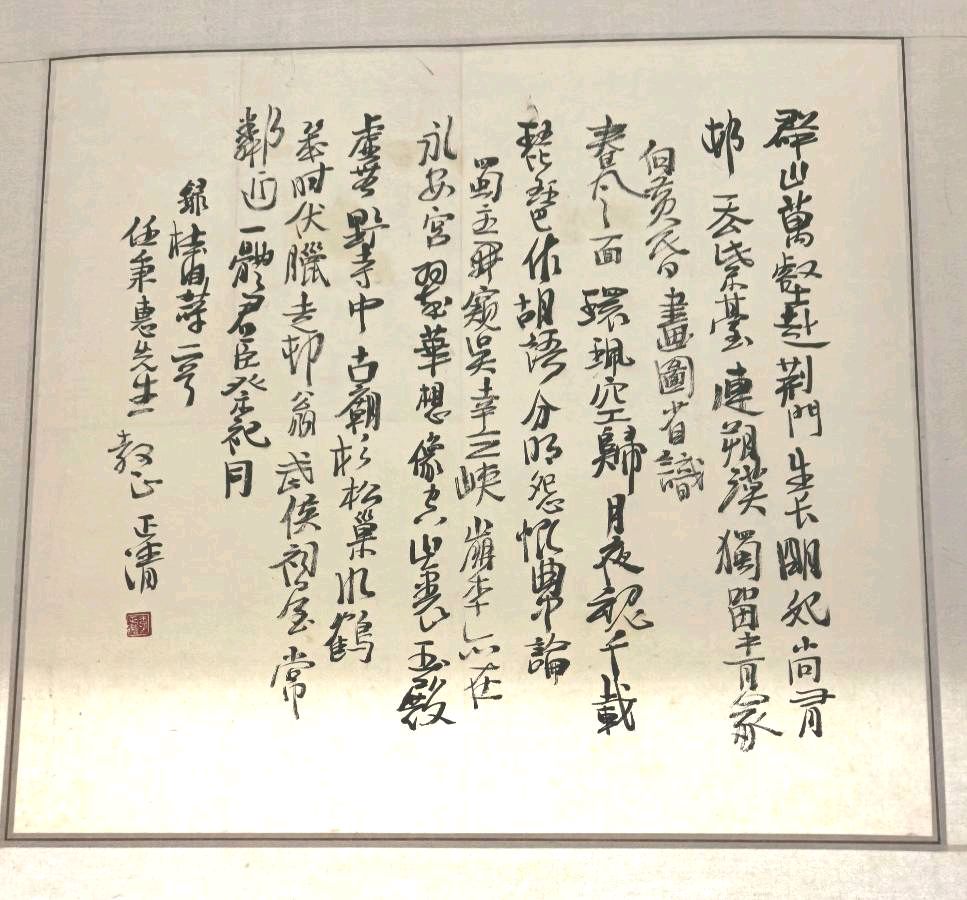 群山萬壑赴荆門生長明妃尚有
邨一去紫臺連朔漠獨留青冢
向黄昏畫圖省識
春風面環珮空歸月夜魂千載
琵琶作胡語分明怨恨曲中論
蜀主窺吴幸三峡崩年亦在
永安宫翠華想像空山裏玉殿
虚無野寺中古廟杉松巢水鶴
歲時伏臘走邨翁武侯祠屋常
鄰近一體君臣祭祀同
録杜甫詩二首
任秉惠先生
教正 正清